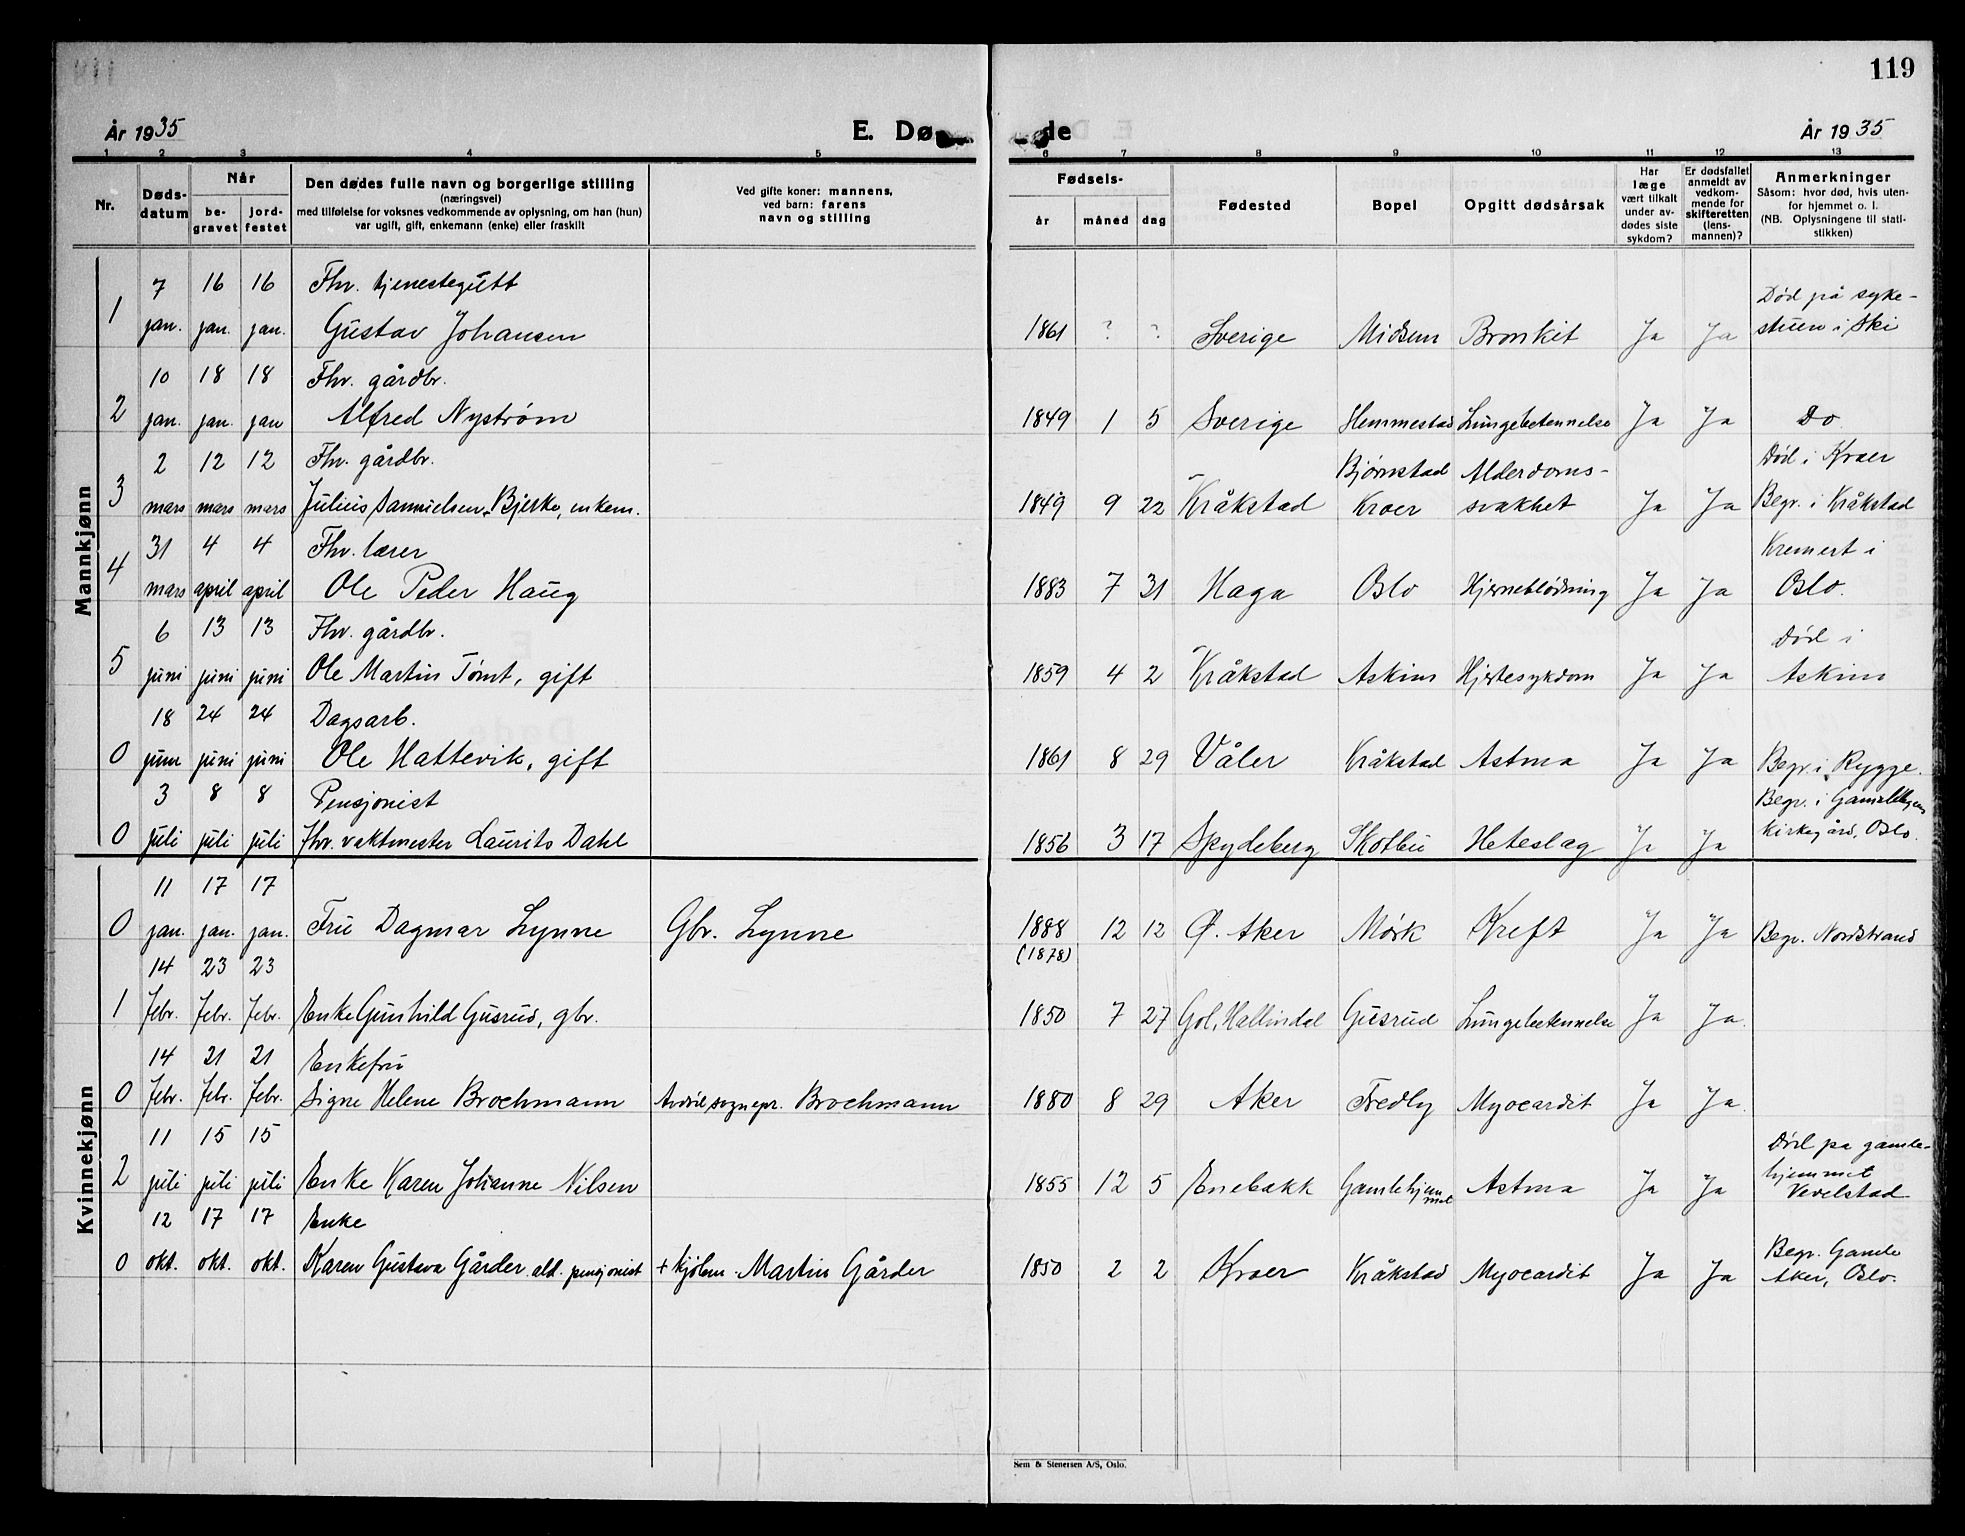 119
År 1935
E. Dø
de
År 1935
1 2 3 4 5 6 7 8 9 10 11 12 13
Nr.
Døds-
datum
Når
be-
gravet
jord-
festet
Den dødes fulle navn og borgerlige stilling
(næringsvei)
med tilføielse for voksnes vedkommende av oplysning, om han (hun)
var ugift, gift, enkemann (enke) eller fraskilt
Ved gifte koner: mannens,
ved barn: farens
navn og stilling
Fødsels-
år måned dag
Fødested
Bopel
Opgitt dødsårsak
Har
læge
vært tilkalt
under av-
dødes siste
sykdom?
Er dødsfallet
anmeldt av
vedkom-
mende for
skifteretten
(lens-
mannen)?
Anmerkninger
Såsom: hvor død, hvis uten-
for hjemmet o. l.
(NB. Oplysningene til stati-
stikken)
Mannkjønn
7 16 16 Fhv. tjenestegutt Død på syke-
1 jan. jan. jan. Gustav Johansen 1861 ? ? Sverige Midsem Bronkit Ja Ja stuen i Ski
10 18 18 Fhv. gårdbr.
2 jan. jan. jan Alfred Nystrøm 1849 1 5 Sverige Hemmestad Lungebetennelse Ja Ja Do
2 12 12 Fhv. gårdbr. Bjørnstad Alderdoms- Død i Kroer
3 mars mars mars Julius Samuelsen Bjerke, enkem. 1849 9 22 Kråkstad Kroer svakhet Ja Ja Begr. i Kråkstad
31 4 4 Fhv. lærer Kremert i
4 mars april april Ole Peder Haug 1883 7 31 Haga Oslo Hjerneblødning Ja Ja Oslo.
6 13 13 Fhv. gårdbr. Død i
5 juni juni juni Ole Martin Tomt, gift 1859 4 2 Kråkstad Askim Hjertesykdom Ja Ja Askim
18 24 24 Dagsarb.
0 juni juni juni Ole Hattevik, gift 1861 8 29 Våler Kråkstad Astma Ja Ja Begr. i Rygge.
3 8 8 Pensjonist Begr. i Gamlebyens
0 juli juli juli fhv. vaktmester Laurits Dahl 1856 3 17 Spydeberg Skotbu Heteslag Ja Ja kirkegård, Oslo.
Kvinnekjønn
11 17 17
0 jan. jan. jan. Fru Dagmar Lynne Gbr. Lynne 1888 12 12 Ø. Aker Mørk Kreft Ja Ja Begr. Nordstrand
(1878)
14 23 23
1 febr. febr. febr. Enke Gunhild Gusrud, gbr. 1850 7 27 Gol, Hallindal Gusrud Lungebetennelse Ja Ja.
14 21 21 Enkefru
0 febr. febr. febr. Signe Helene Brochmann Avdøde sognepr. Brochmann 1880 8 29 Aker Fredly Myocardit Ja Ja.
11 15 15 Død pa gamle-
2 juli juli juli Enke Karen Johanne Nilsen 1855 12 5 Enebakk Gamlehjemmet Astma Ja Ja hjemmet
Vevelstad
12 17 17 Enke Begr. Gamle
0 okt. okt. okt. Karen Gustava Gårder. ald. pensjonist + kjølem. Martin Gårder 1850 2 2 Kroer Kråkstad Myocardit Ja Ja Aker, Oslo.
Sem & Stenersen A/S, Oslo.